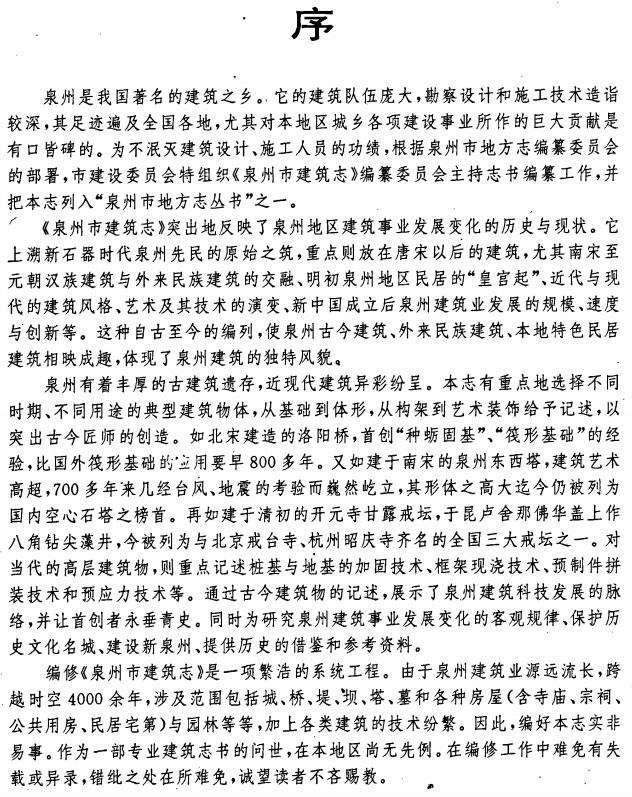 序
泉州是我国著名的建筑之乡。它的建筑队伍庞大,勘察设计和施工技术造诣
较深,其足迹遍及全国各地,尤其对本地区城乡各项建设事业所作的巨大贡献是
有口皆碑的。为不泯灭建筑设计、施工人员的功绩,根据泉州市地方志编纂委员会
的部署,市建设委员会特组织《泉州市建筑志》编纂委员会主持志书编纂工作,并
把本志列入“泉州市地方志丛书”之一。
《泉州市建筑志》突出地反映了泉州地区建筑事业发展变化的历史与现状。它
上溯新石器时代泉州先民的原始之筑,重点则放在唐宋以后的建筑,尤其南宋至
元朝汉族建筑与外来民族建筑的交融、明初泉州地区民居的“皇宫起”、近代与现
代的建筑风格、艺术及其技术的演变、新中国成立后泉州建筑业发展的规模、速度
与创新等。这种自古至今的编列,使泉州古今建筑、外来民族建筑、本地特色民居
建筑相映成趣,体现了泉州建筑的独特风貌。
泉州有着丰厚的古建筑遗存,近现代建筑异彩纷呈。本志有重点地选择不同
时期、不同用途的典型建筑物体,从基础到体形,从构架到艺术装饰给予记述,以
突出古今匠师的创造。如北宋建造的洛阳桥,首创“种蛎固基”、“筏形基础”的经
验,比国外筏形基础的应用要早800多年。又如建于南宋的泉州东西塔,建筑艺术
高超,700多年来几经台风、地震的考验而巍然屹立,其形体之高大迄今仍被列为
国内空心石塔之榜首。再如建于清初的开元寺甘露戒坛,于昆卢舍那佛华盖上作
八角钻尖藻井,今被列为与北京戒台寺、杭州昭庆寺齐名的全国三大戒坛之一。对
当代的高层建筑物,则重点记述桩基与地基的加固技术、框架现浇技术、预制件拼
装技术和预应力技术等。通过古今建筑物的记述,展示了泉州建筑科技发展的脉
络,并让首创者永垂青史。同时为研究泉州建筑事业发展变化的客观规律、保护历
史文化名城、建设新泉州、提供历史的借鉴和参考资料。
编修《泉州市建筑志》是一项繁浩的系统工程。由于泉州建筑业源远流长,跨
越时空4000余年,涉及范围包括城、桥、堤、坝、塔、墓和各种房屋(含寺庙、宗祠、
公共用房、民居宅第)与园林等等,加上各类建筑的技术纷繁。因此,编好本志实非
易事。作为一部专业建筑志书的问世,在本地区尚无先例。在编修工作中难免有失
载或异录,错纰之处在所难免,诚望读者不吝赐教。